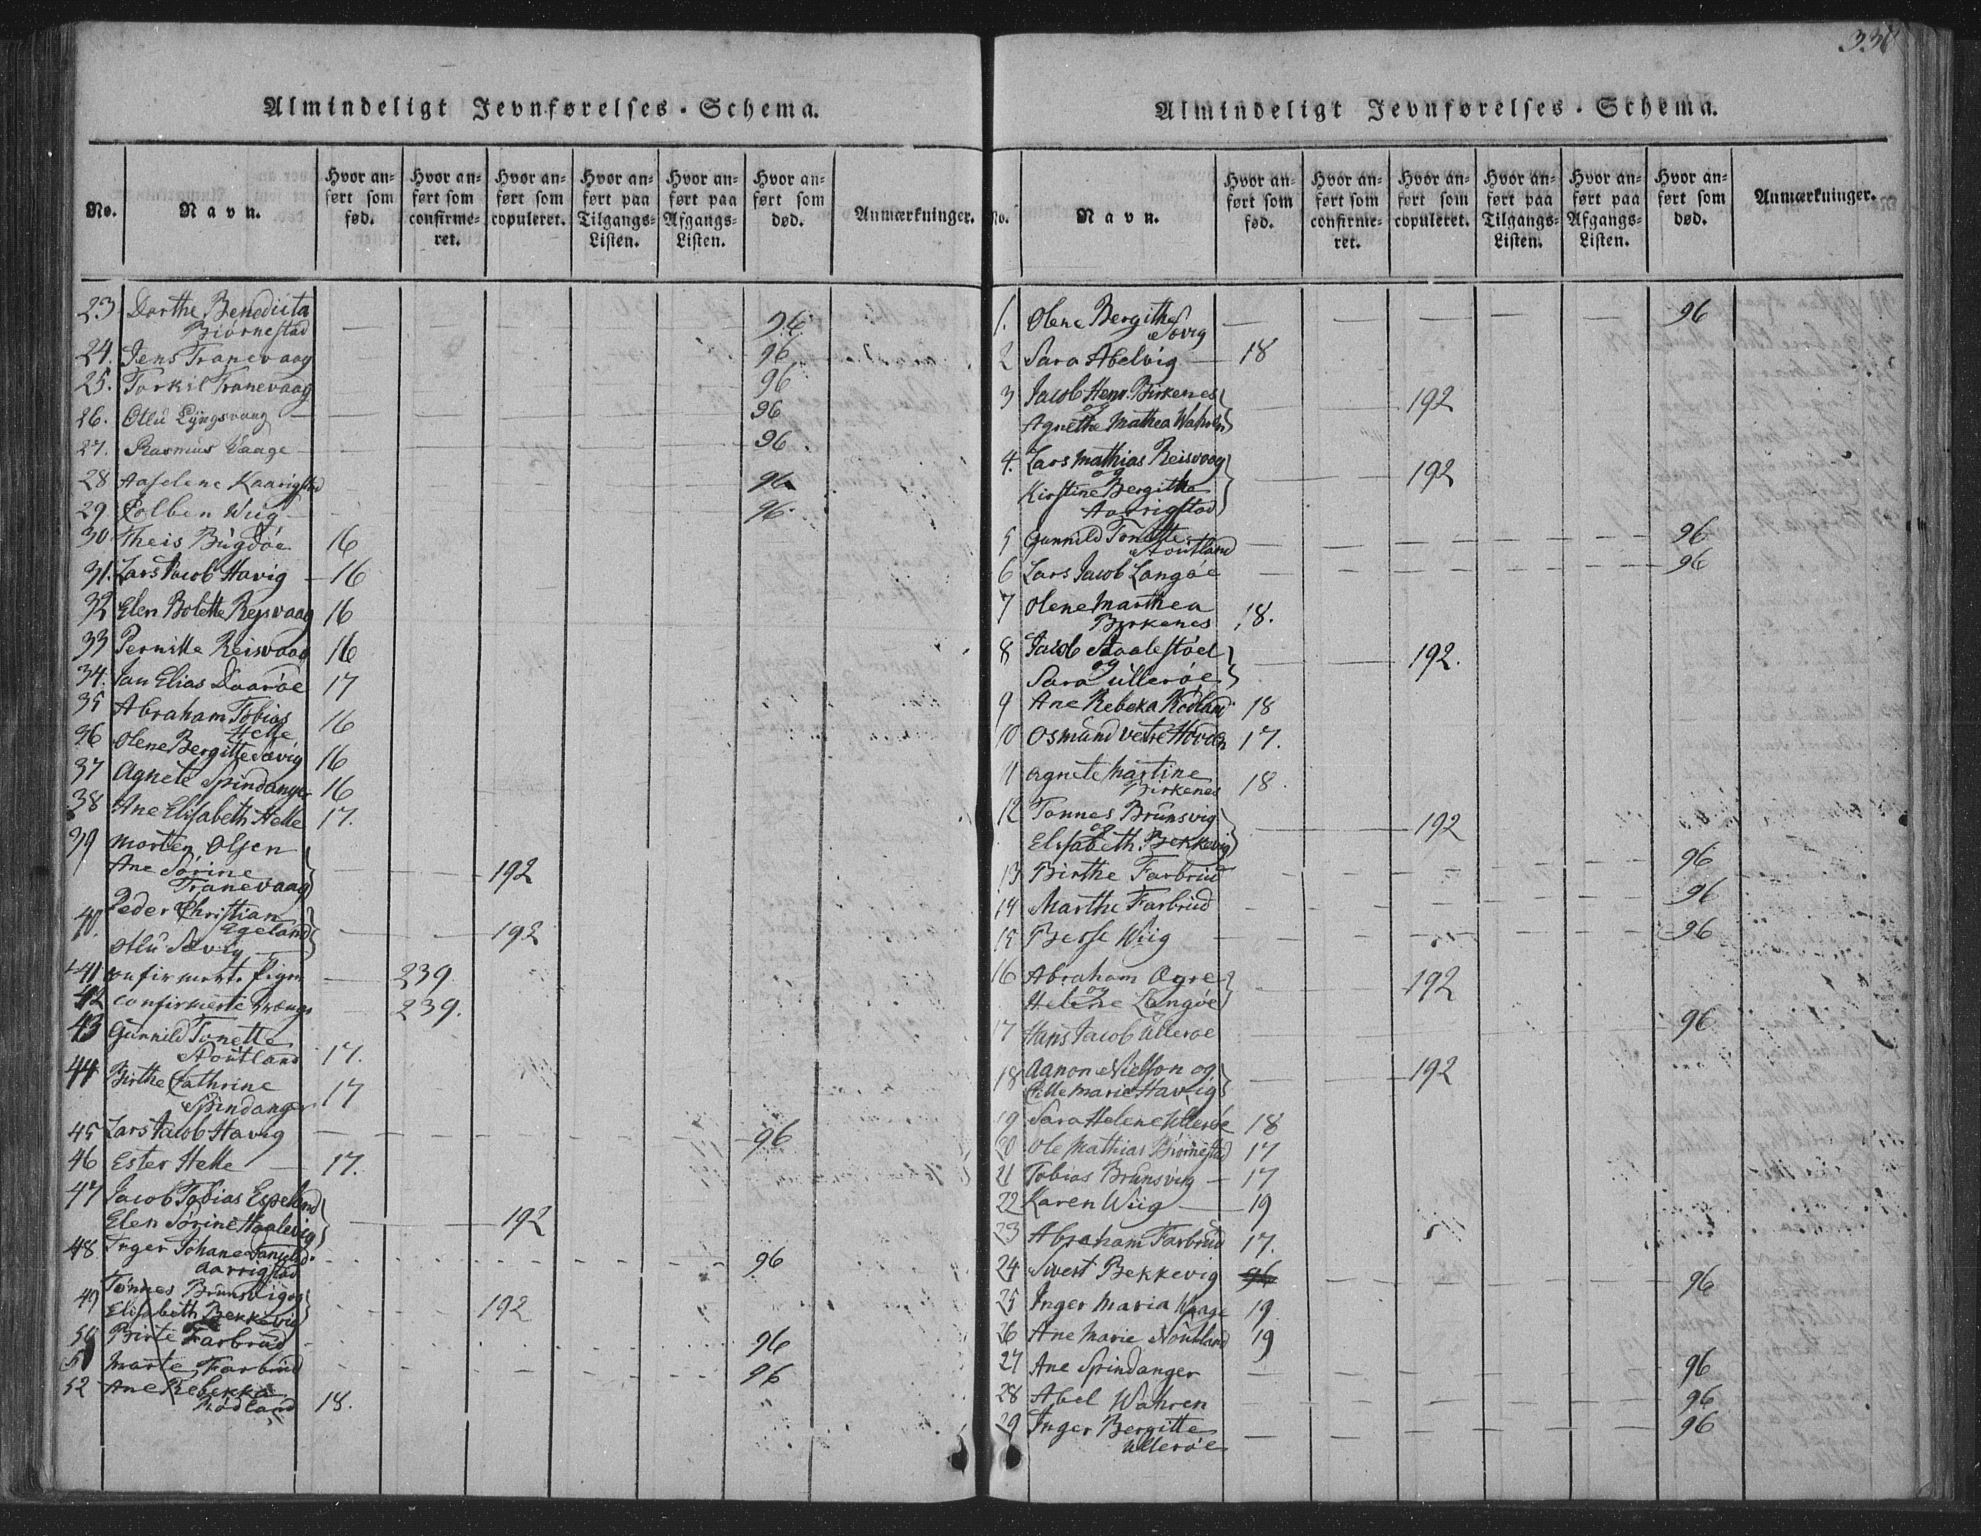 Almindeligt Jevnførelses-Schema.
No. Navn. Hvor anført som fød. Hvor anført som confirmeret. Hvor anført som copuleret. Hvor anført paa Tilgangs-Listen. Hvor anført paa Afgangs-Listen. Hvor anført som død. Anmærkninger.
23 Dorthe Benedicta
Biørnestad 96
24. Jens Tranevaag 96
25. Torkil Tranevaag 96
26. Ollu Lÿngsvaag 96
27. Rasmus Vaage 96
28 Aaselene Kaarigstad 96
29 Colben Wiig 96
30 Theis Bugdøe 16
31. Lars Jacob Havig 16
32 Elen Bolette Rejsvaag 16
33 Pernille Reisvaag 16
34. Jan Elias Daarøe 17
35 Abraham Tobias
Helle 16
36 Olene Bergitte Søvig 16
37 Agnete Spindanger 16
38 Ane Elisabeth Helle 17.
39 Morten Olsen
Ane Sørine
Tranevaag 192
40. Peder Christian
Egeland 192
Ollu Søvig
41 Confirmert. Pign 239
42 Confirmerte Drengs 239.
43 Gunnild Tonette
Stoutland 17.
44 Birthe Cathrine
Spindanger 17
45 Lars Jacob Havig 96
46 Ester Helle 17.
47 Jacob Tobias Espeland
Elen Sørine Haalevig 192
48 Inger Johane
Aarrigstad 96
49 Tønnes Brunsvig og
Elisabeth Bekkevig 192
50 Birte Farbrud 96
51 Marte Farbrud 96
52 Ane Rebekka
Rødland 18.
331
Almindeligt Jevnførelses-Schema.
No. Navn. Hvor anført som fød. Hvor anført som confirmeret. Hvor anført som copuleret. Hvor anført paa Tilgangs-Listen. Hvor anført paa Afgangs-Listen. Hvor anført som død. Anmærkninger.
1. Olene Bergithe
Søvig 96
2 Sara Abelvig 18
3 Jacob Henr. Birkenes
og
Agnethe Mathea Wahren 192
4. Lars Mathias Reisvaag
og
Kirstine Bergitha
Aarrigstad 192
5 Gunnild Tonette
Stoutland 96
6 Lars Jacob Langøe 96
7 Olene Marthea
Byrkenes 18.
8 Jacob Staalestøel
og
Sara Ullerøe 192.
9 Ane Rebeka Rødland 18
10 Osmund vetre Hovden 17.
11 Agnete Martine
Birkenes 18.
12 Tønnes Brunsvig
og
Elisabeth Bekkevig 192
13 Birthe Farbrud 96
14 Marthe Farbrud 96
15 Berge Wiig 96
16 Abraham Ogre
og
Helene Langøe 192
17 Hans Jacob Ullerøe 96
18 Aanon Nielson og
Sille Marie Havig 192
19 Sara Helene Ullerøe 18
20 Ole Mathias Biørnestad 17
21 Tobias Brunsvig 17
22 Karen Wiig 19
23 Abraham Farbrud 17.
24 Sivert Bekkevig 96 96
25 Inger Maria Waage 19
26 Ane Marie Noutland 19
27 Ane Spindanger 96
28 Abel Wahren 96
29 Inger Bergitte
Ullerøe 96